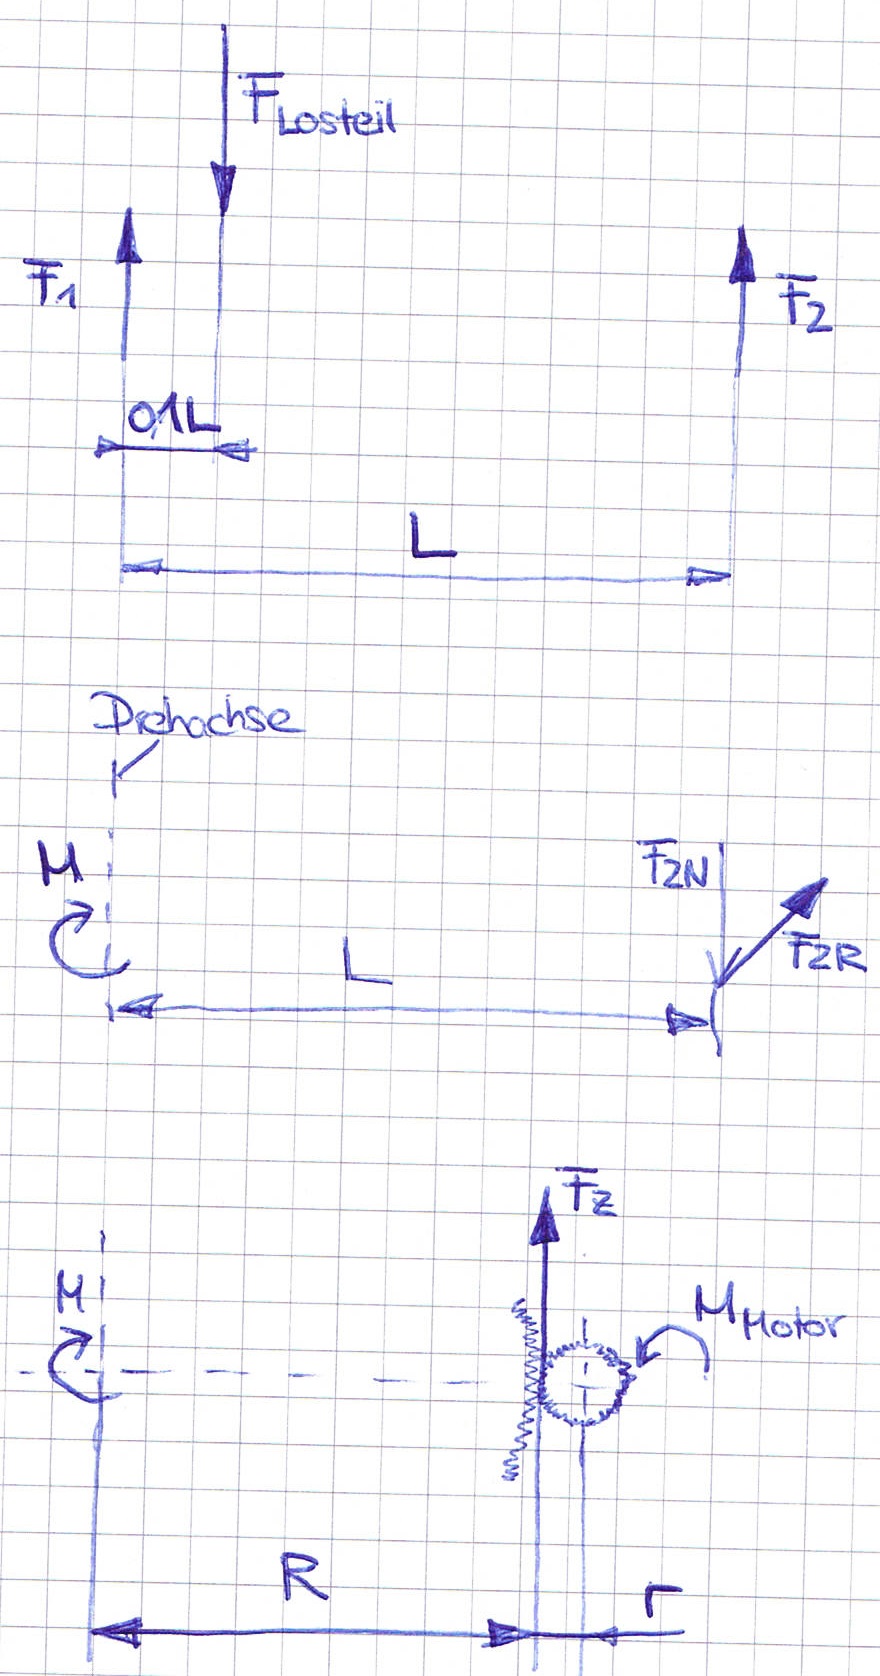 F Losteil
F1
F2
0,1L
L
Drehachse
M
F2N
F2R
L
Fz
M
M Motor
R
r